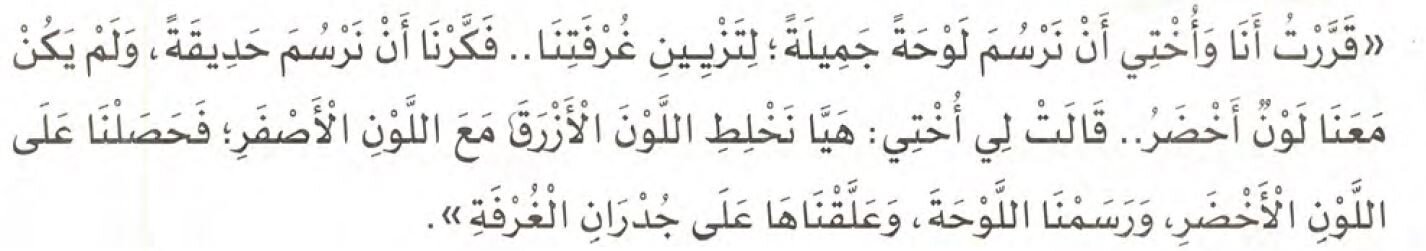 «قَرَّرْتُ أَنَا وَأُخْتِي أَنْ نَرْسُمَ لَوْحَةً جَمِيلَةً؛ لِتَزْيِينِ غُرْفَتِنَا.. فَكَّرْنَا أَنْ نَرْسُمَ حَدِيقَةً، وَلَمْ يَكُنْ
مَعَنَا لَوْنٌ أَخْضَرُ.. قَالَتْ لِي أُخْتِي: هَيَّا نَخْلِطِ اللَّوْنَ الْأَزْرَقَ مَعَ اللَّوْنِ الْأَصْفَرِ؛ فَحَصَلْنَا عَلَى
اللَّوْنِ الْأَخْضَرِ، وَرَسَمْنَا اللَّوْحَةَ، وَعَلَّقْنَاهَا عَلَى جُدْرَانِ الْغُرْفَةِ».